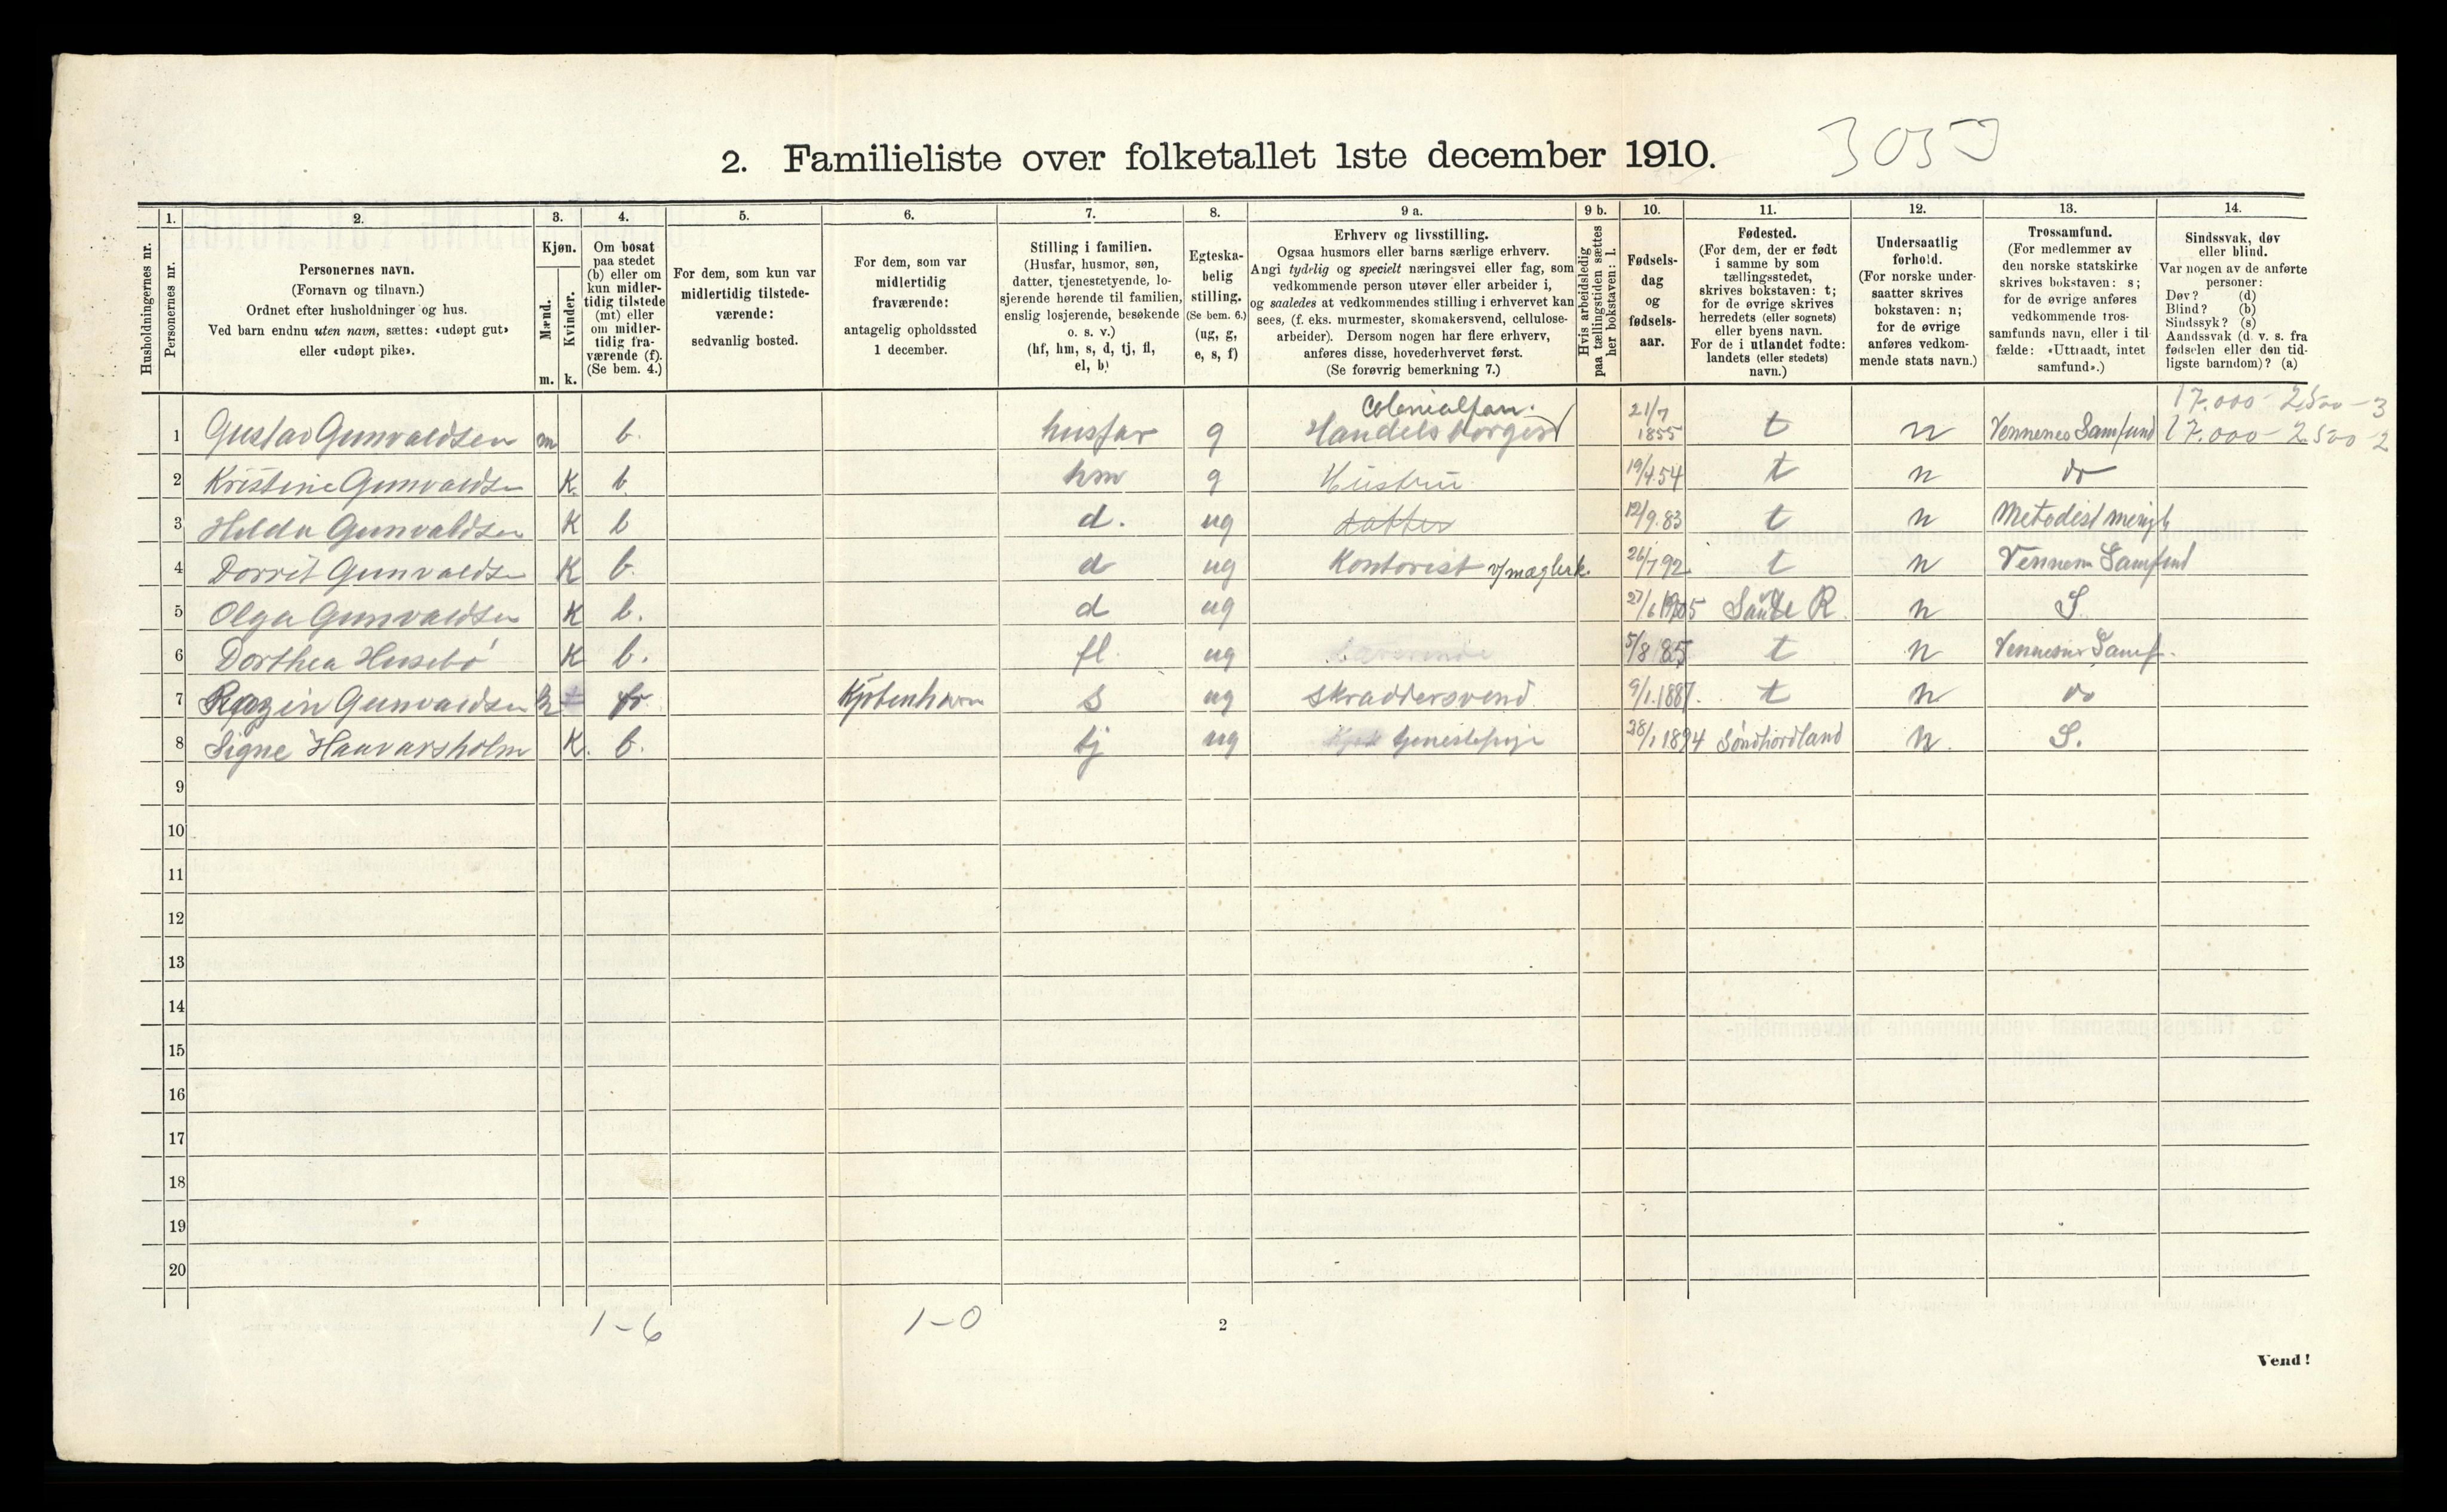 2. Familieliste over folketallet 1ste december 1910.
1. 2. 3. 4. 5. 6. 7. 8. 9 a. 9 b. 10. 11. 12. 13. 14.
Husholdningernes nr.
Personernes nr.
Personernes navn.
(Fornavn og tilnavn.)
Ordnet efter husholdninger og hus.
Ved barn endnu uten navn, sættes: «udøpt gut»
eller «udøpt pike».
Kjøn.
Mænd.
Kvinder.
m. k.
Om bosat
paa stedet
(b) eller om
kun midler-
tidig tilstede
(mt) eller
om midler-
tidig fra-
værende (f).
(Se bem. 4.)
For dem, som kun var
midlertidig tilstede-
værende:
sedvanlig bosted.
For dem, som var
midlertidig
fraværende:
antagelig opholdssted
1 december.
Stilling i familien.
(Husfar, husmor, søn,
datter, tjenestetyende, lo-
sjerende hørende til familien,
enslig losjerende, besøkende
o. s. v.)
(hf, hm, s, d, tj, fl,
el, b)
Egteska-
belig
stilling.
(Se bem. 6.)
(ug, g,
e, s, f)
Erhverv og livsstilling.
Ogsaa husmors eller barns særlige erhverv.
Angi tydelig og specielt næringsvei eller fag, som
vedkommende person utøver eller arbeider i,
og saaledes at vedkommendes stilling i erhvervet kan
sees, (f. eks. murmester, skomakersvend, cellulose-
arbeider). Dersom nogen har flere erhverv,
anføres disse, hovederhvervet først.
(Se forøvrig bemerkning 7.)
Hvis arbeidsledig
paa tællingstiden sættes
her bokstaven: l.
Fødsels-
dag
og
fødsels-
aar.
Fødested.
(For dem, der er født
i samme by som
tællingsstedet,
skrives bokstaven: t;
for de øvrige skrives
herredets (eller sognets)
eller byens navn.
For de i utlandet fødte:
landets (eller stedets)
navn.)
Undersaatlig
forhold.
(For norske under-
saatter skrives
bokstaven: n;
for de øvrige
anføres vedkom-
mende stats navn.)
Trossamfund.
(For medlemmer av
den norske statskirke
skrives bokstaven: s;
for de øvrige anføres
vedkommende tros-
samfunds navn, eller i til-
fælde: «Uttraadt, intet
samfund».)
Sindssvak, døv
eller blind.
Var nogen av de anførte
personer:
Døv? (d)
Blind? (b)
Sindssyk? (s)
Aandssvak (d. v. s. fra
fødselen eller den tid-
ligste barndom)? (a)
17.000 - 2500 - 3
1 Gustav Gunvaldsen m b. husfar g Handelsborger 21/7 1855 t n Vennenes Samfund 17.000 - 2500 - 2
2 Kristine Gunvaldsen K b hm g Hustru 19/4.54 t n do
3 Helda Gunvaldsen K b d. ug datter 12/9.83 t n Metodist
4 Dorrit Gunvaldsen K b. d ug Kontorist v/mægler 26/7 92 t n Vennene Samfund
5 Olga Gunvaldsen K b. d ug 27/6 1905 R. n S.
6 Dorthea Husebö K b. fl. ug 5/8 85 t n Vennenes Samf.
7 Gunvaldsen Kjøbenhavn s ug skraddersvend 9/1.1887. t n do
8 Signe Haavarsholm K. b. tj ug tjenestepige 28/1 1894 Søndhordland n. S.
9
10
11
12
13
14
15
16
17
18
19
20
1-6 1-0
2
Vend!